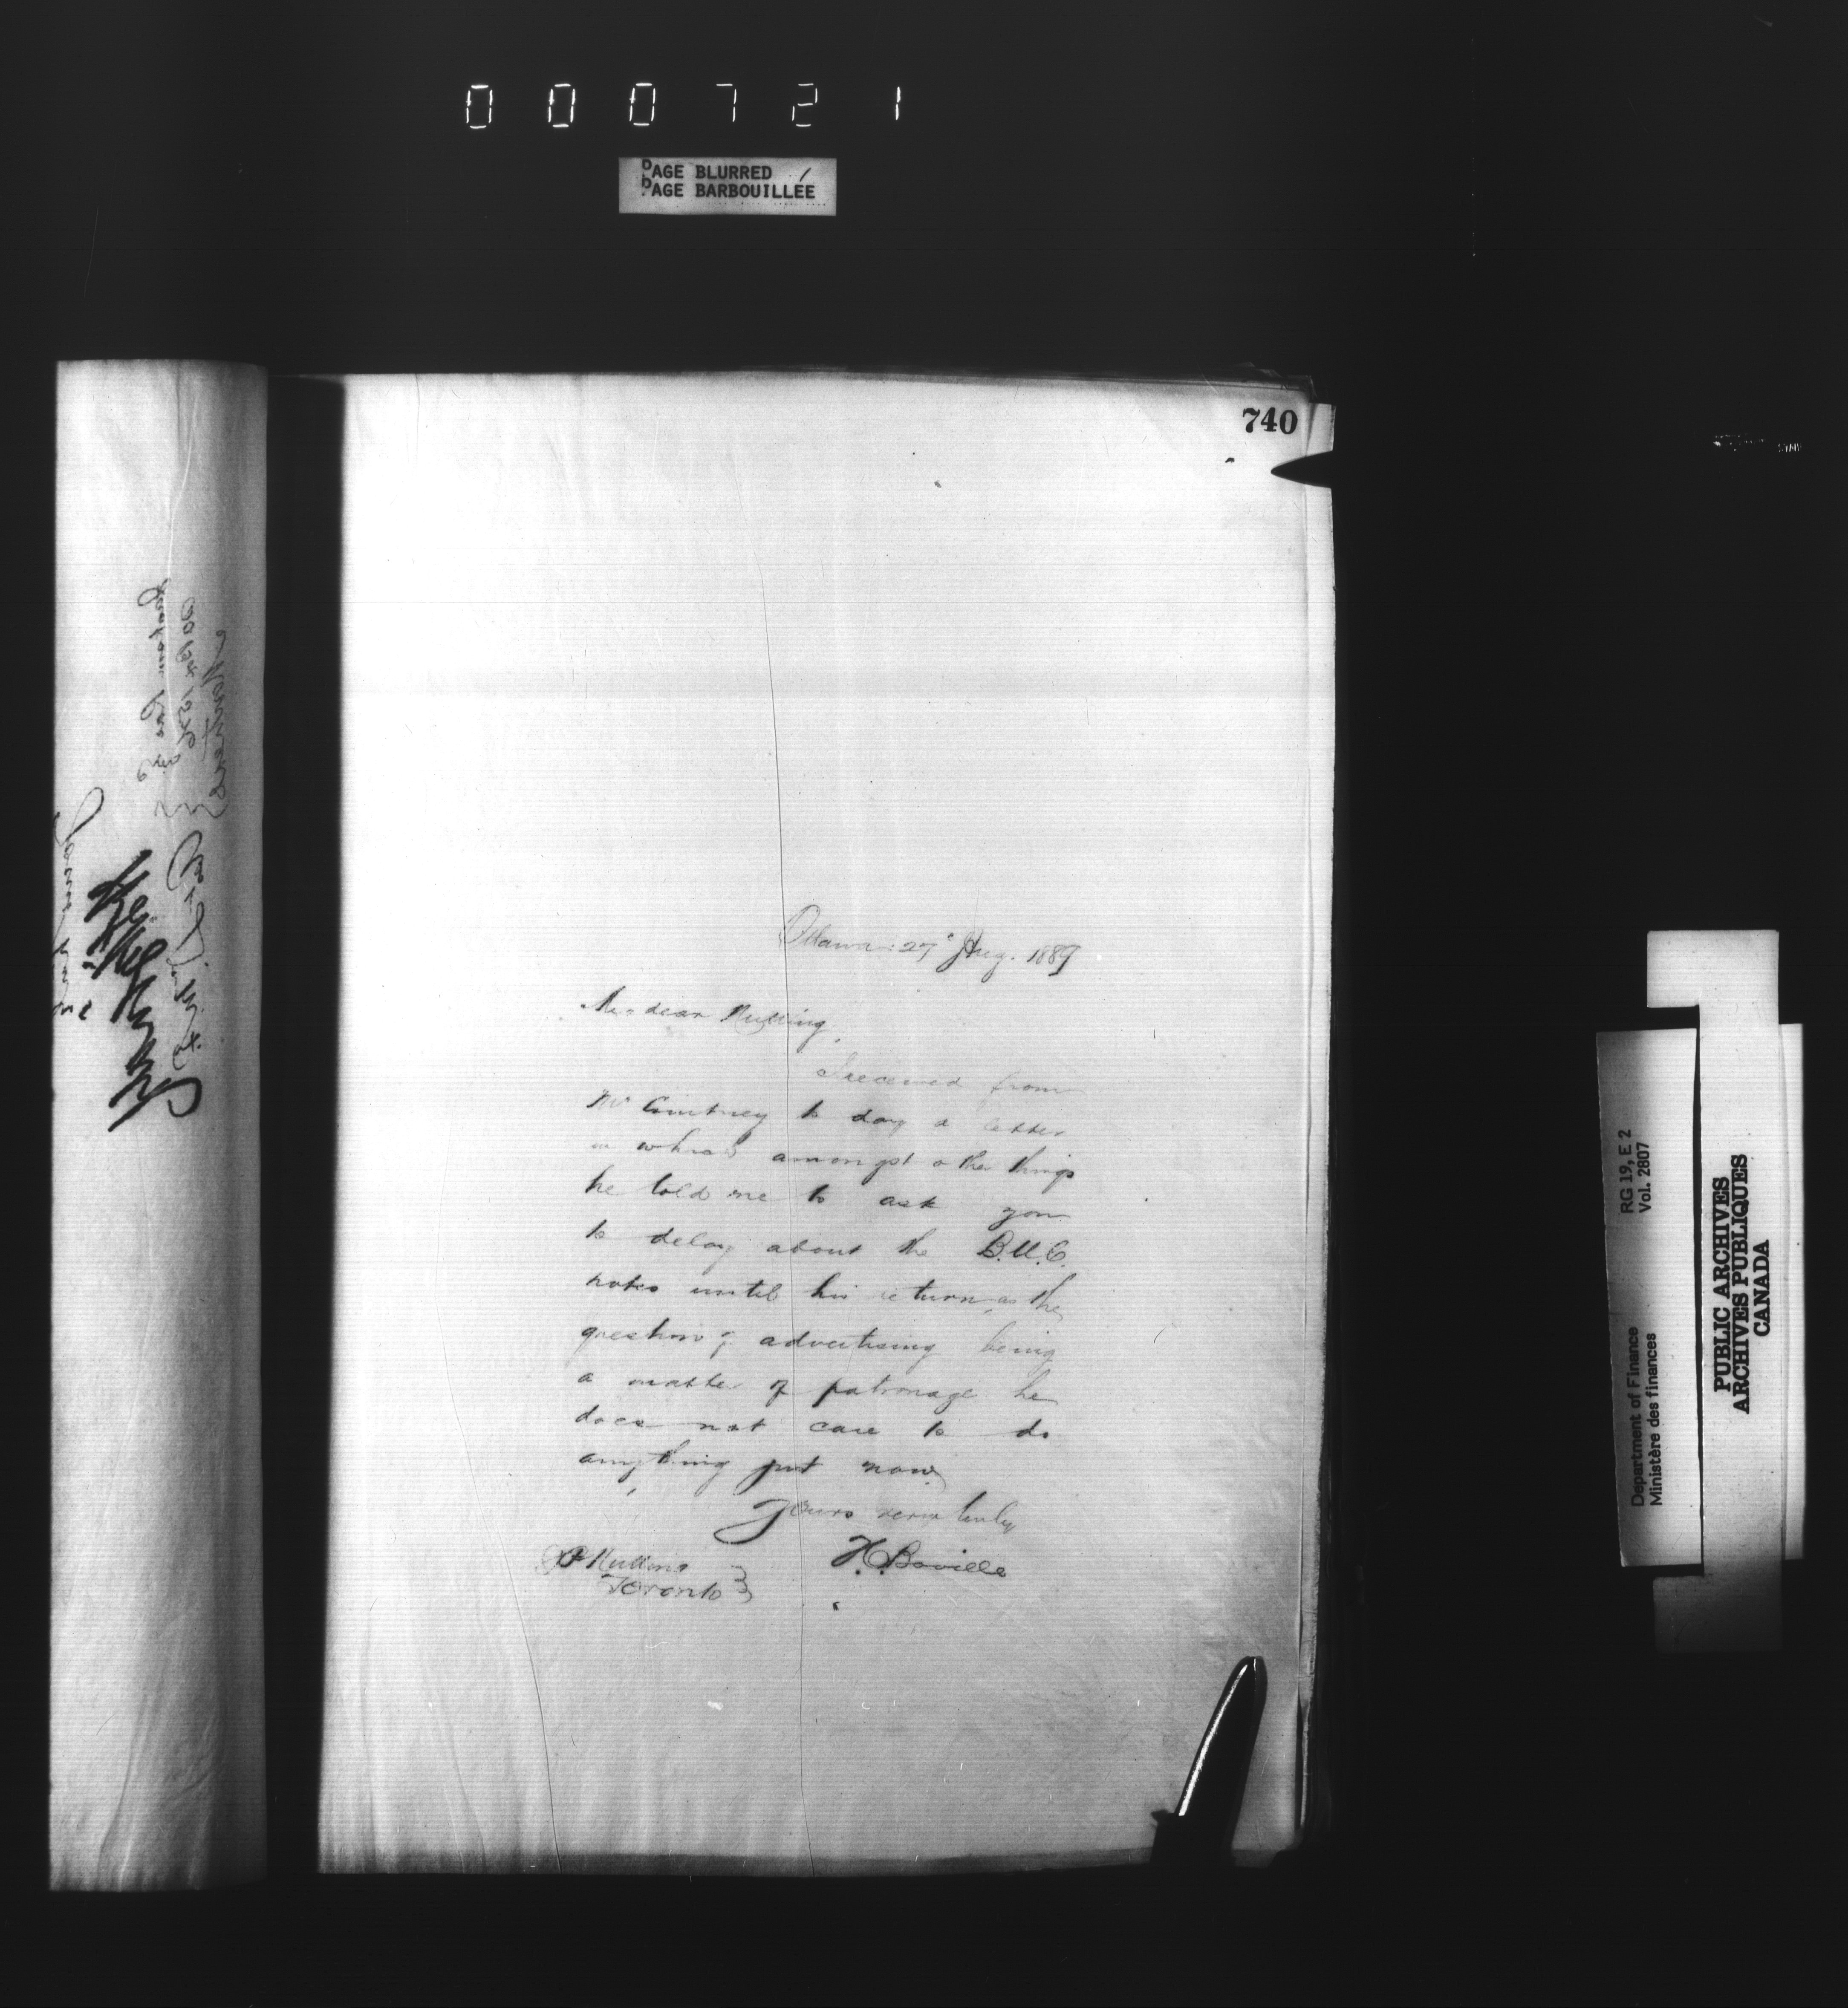 000721
PAGE BLURRED
PAGE BARBOUILLÉE
740
Ottawa: 27 Aug. 1889
My dear Nutting,
I received from
Mr Courtney to day a letter
in which amongst other things
he told me to ask you
to delay about the B.U.C.
notes until his return, as the
question of advertising being
a matter of patronage he
does not care to do
anything just now,
Yours very truly
Boville
Nutting
Toronto
RG 19, E 2
Vol. 2807
Department of Finance
Ministère des finances
PUBLIC ARCHIVES
ARCHIVES PUBLIQUES
CANADA